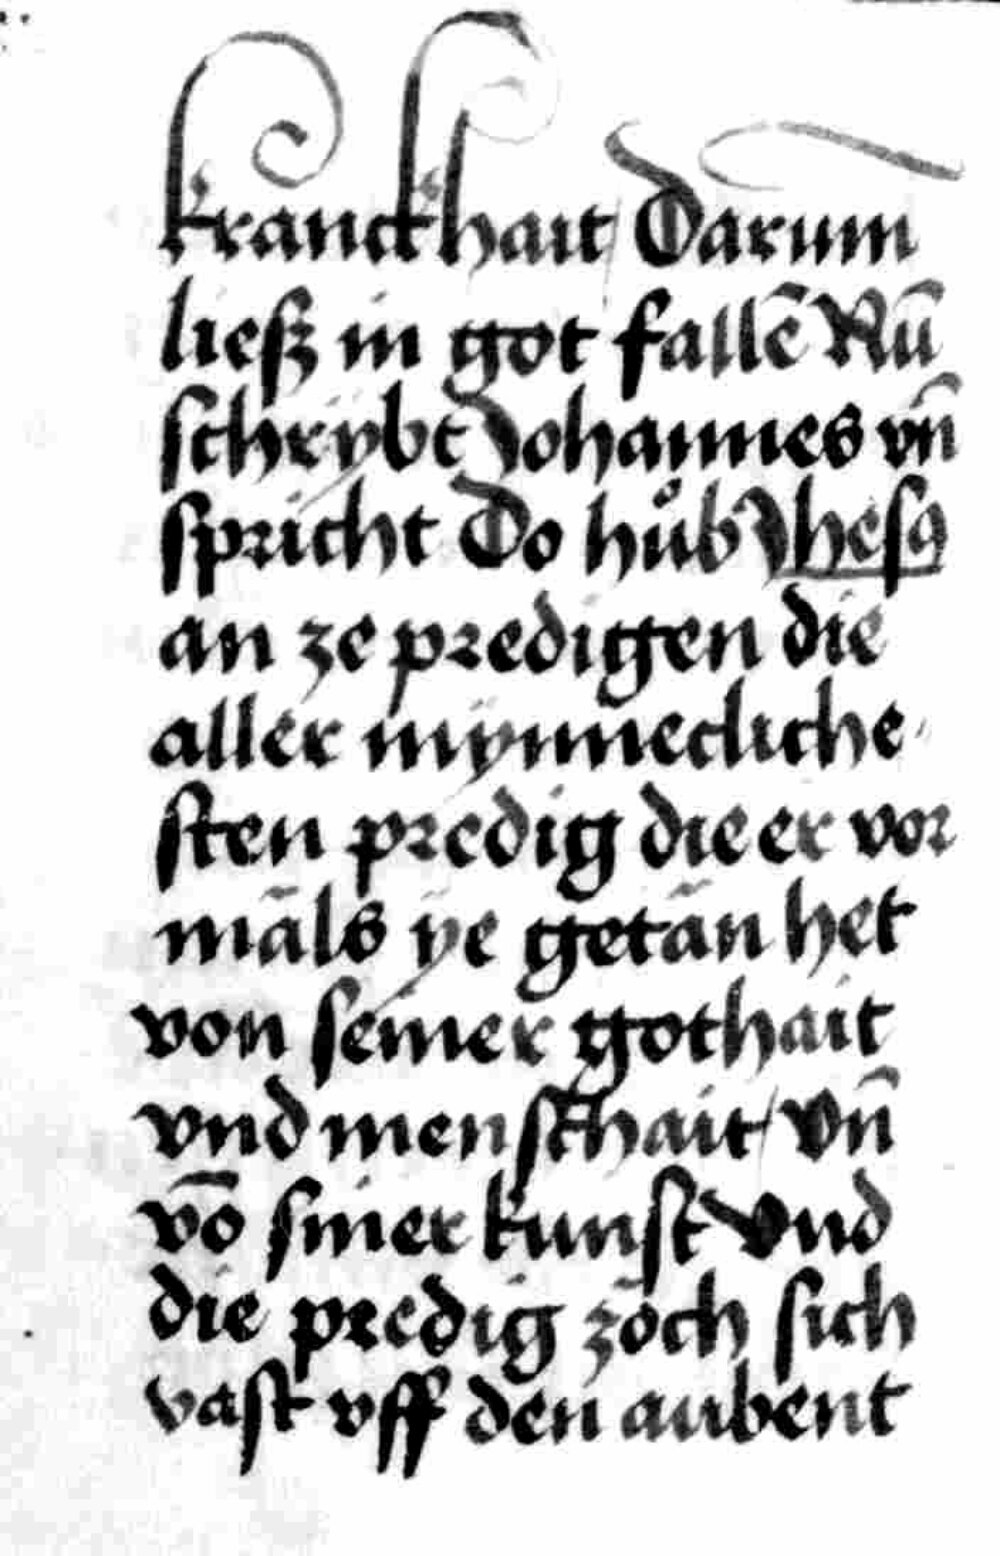 kranckhait / Darum
ließ in got fallē Nū
schrÿbt Johannes vn̄
spricht Do hůb Jhesꝯ
an ze predigen die
aller mÿnnecliche
sten predig die er vor
māls ÿe getān het
von seiner gothait
vnd menschait / Vn̄
vō siner kunst Vnd
die predig zōch sich
vast vff den aubent